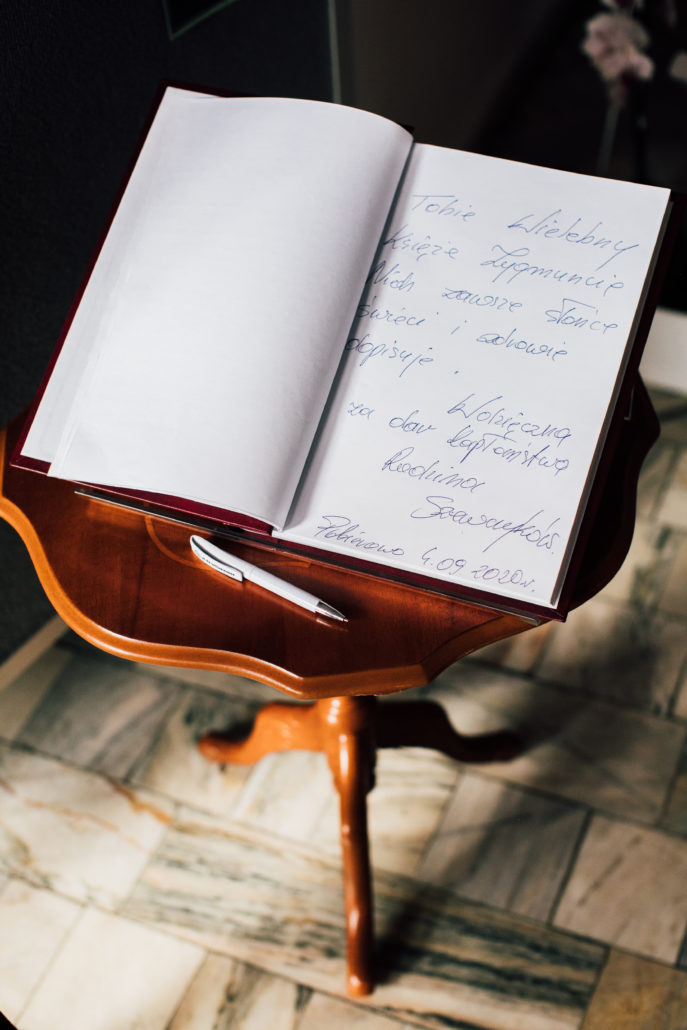 Tobie Wielebny
Księże Zygmuncie
Niech zawsze słońce
świeci i zdrowie
dopisuje.
Wdzięczna
za dar kapłaństwa
Rodzina
4.09.2020r.